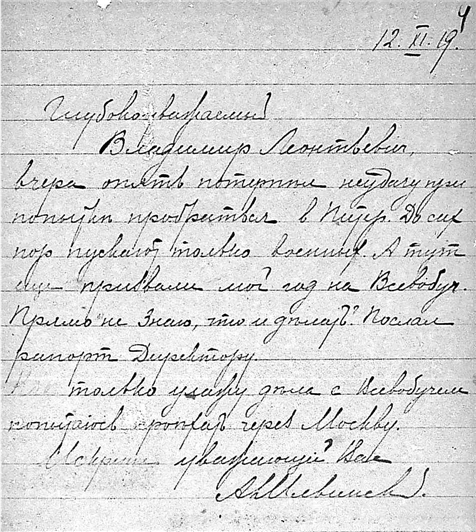 12. XI. 19.
Глубокоуважаемый
Владимир Леонтьевич,
вчера опять потерпел неудачу при
попытке пробраться в Питер. До сих
пор пускают только военных. А тут
еще призвали мой год на Всевобуч.
Прямо не знаю, что и дѣлать. Послал
рапорт Директору.
только улажу дѣла с Всевобучем
попытаюсь проехать через Москву.
Искренне уважающий Вас